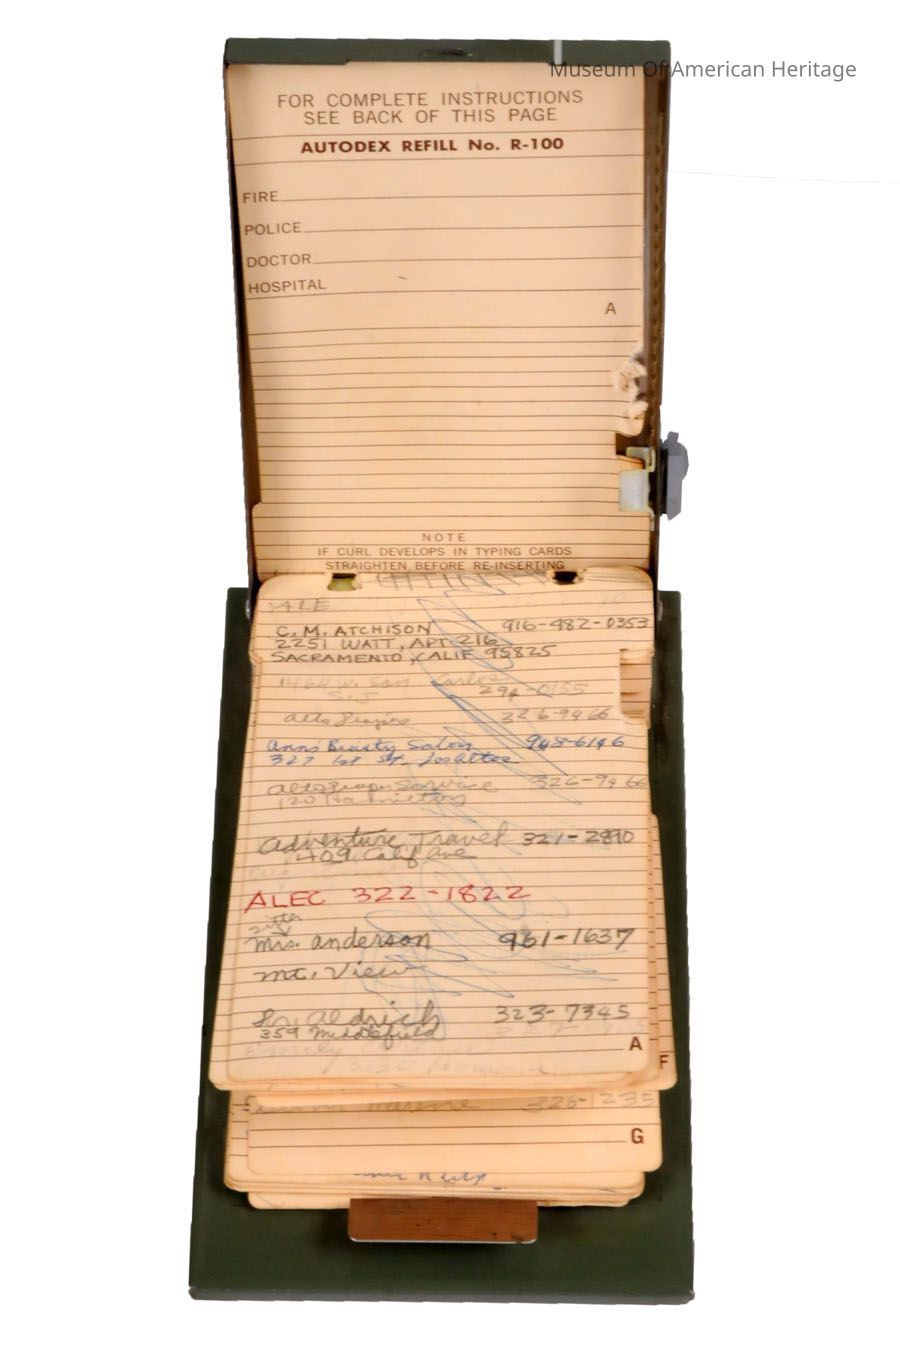 Museum Of American Heritage
FOR COMPLETE INSTRUCTIONS
SEE BACK OF THIS PAGE
AUTODEX REFILL No. R-100
FIRE
POLICE
DOCTOR
HOSPITAL
A
NOTE
IF CURL DEVELOPS IN TYPING CARDS
STRAIGHTEN BEFORE RE-INSERTING
C. M. ATCHISON 916-482-0353
2251 WATT, APT 216
SACRAMENTO, CALIF 95825
1464 W. San Carlos
S.J 294-0155
326-9466
Ann's Beauty Salon 948-6146
327 1st St. Los Altos
326-9466
Adventure Travel 321-2890
409 Calif Ave
ALEC 322-1822
sitter
Mrs. Anderson 961-1637
Mt. View
Aldrich 323-7345
359 Middlefield
A
F
326-1235
G